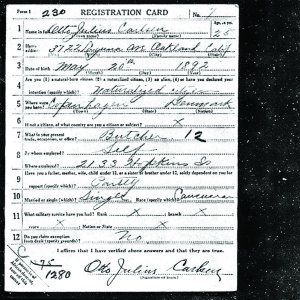 Form 1 230 REGISTRATION CARD No. 7
1 Name in full Otto Julius Carlsen Age, in yrs. 25
(Given name) (Family name)
2 Home address 3722 Ave Oakland Calif
(No.) (Street) (City) (State)
3 Date of birth May 20th 1892
(Month) (Day) (Year)
4 Are you (1) a natural-born citizen, (2) a naturalized citizen, (3) an alien, (4) or have you declared your
intention (specify which)? Naturalized citizen
5 Where were you born? Copenhagen Denmark
(Town) (State) (Nation)
6 If not a citizen, of what country are you a citizen or subject? X
7 What is your present trade, occupation, or office? Butcher 12
8 By whom employed? Self
Where employed? 2133 Hopkins St
9 Have you a father, mother, wife, child under 12, or a sister or brother under 12, solely dependent on you for
support (specify which)?
10 Married or single (which)? Single Race (specify which)? Caucasian
11 What military service have you had? Rank X ; branch X
years X ; Nation or State X
12 Do you claim exemption from draft (specify grounds)? No
I affirm that I have verified above answers and that they are true.
75
1280
Otto Julius Carlsen
(Signature or mark)